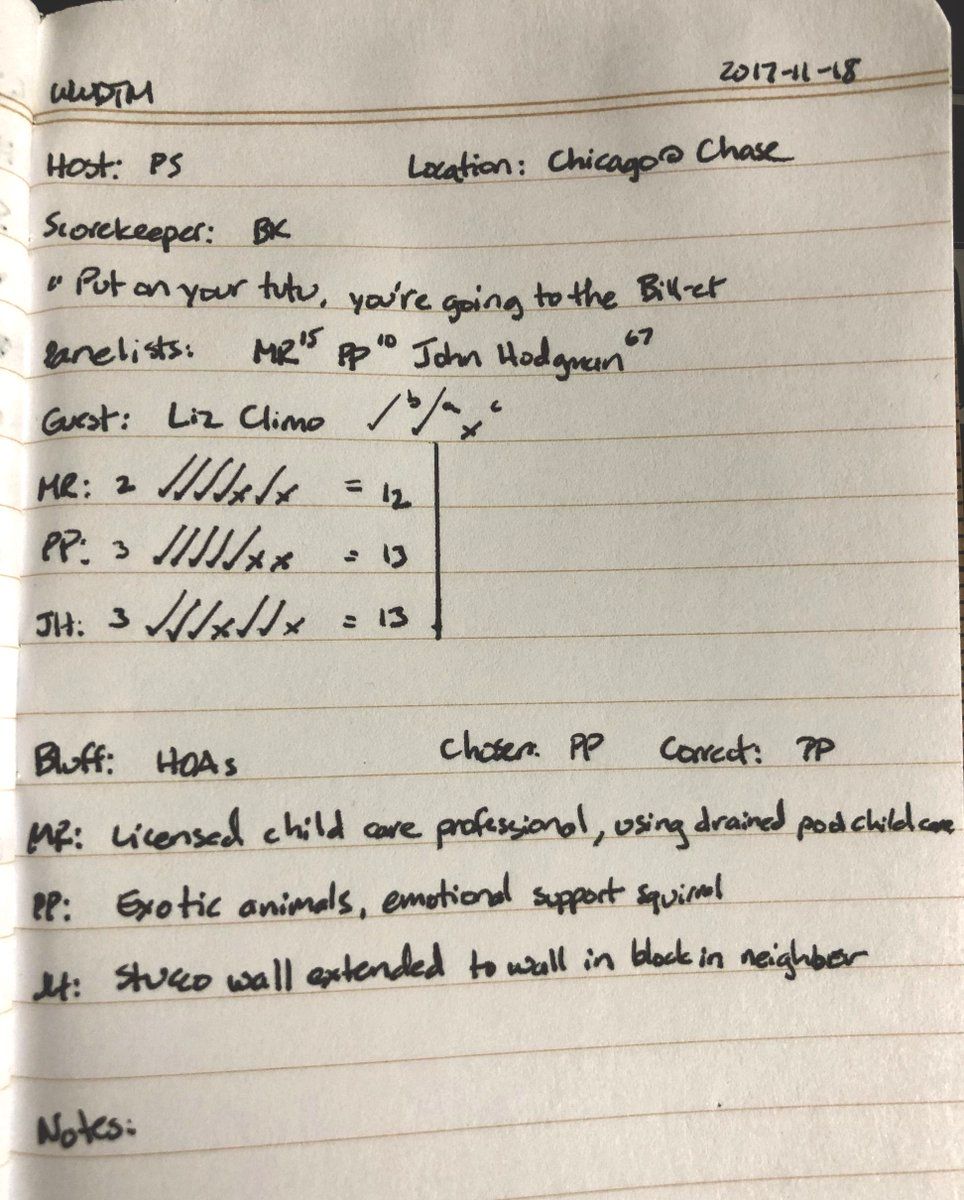 WWDTM 2017-11-18
Host: PS Location: Chicago@ Chase
Scorekeeper: BK
" Put on your tutu, you're going to the Bill-et
Panelists: MR 15 PP 10 John Hodgman 67
Guest: Liz Climo ✓ b ✓ a x c
MR: 2 ✓✓✓✓x✓x = 12
PP: 3 ✓✓✓✓✓xx = 13
JH: 3 ✓✓✓x✓✓x = 13
Bluff: HOAs Chosen: PP Correct: PP
MR: Licensed child care professional, using drained pool child care
PP: Exotic animals, emotional support squirrel
JH: Stucco wall extended to wall in block in neighbor
Notes: